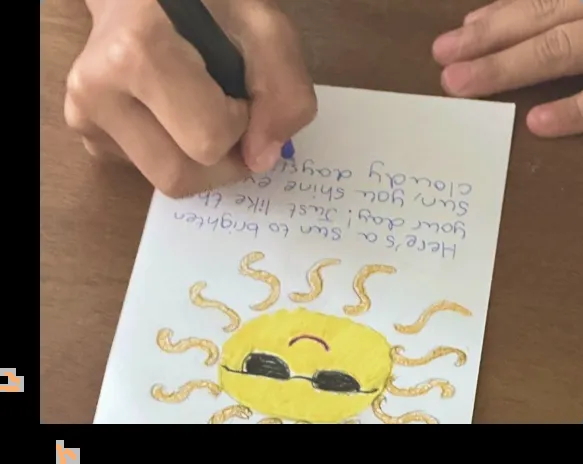 Here's a sun to brighten
your day! Just like the
sun, you shine
cloudy days